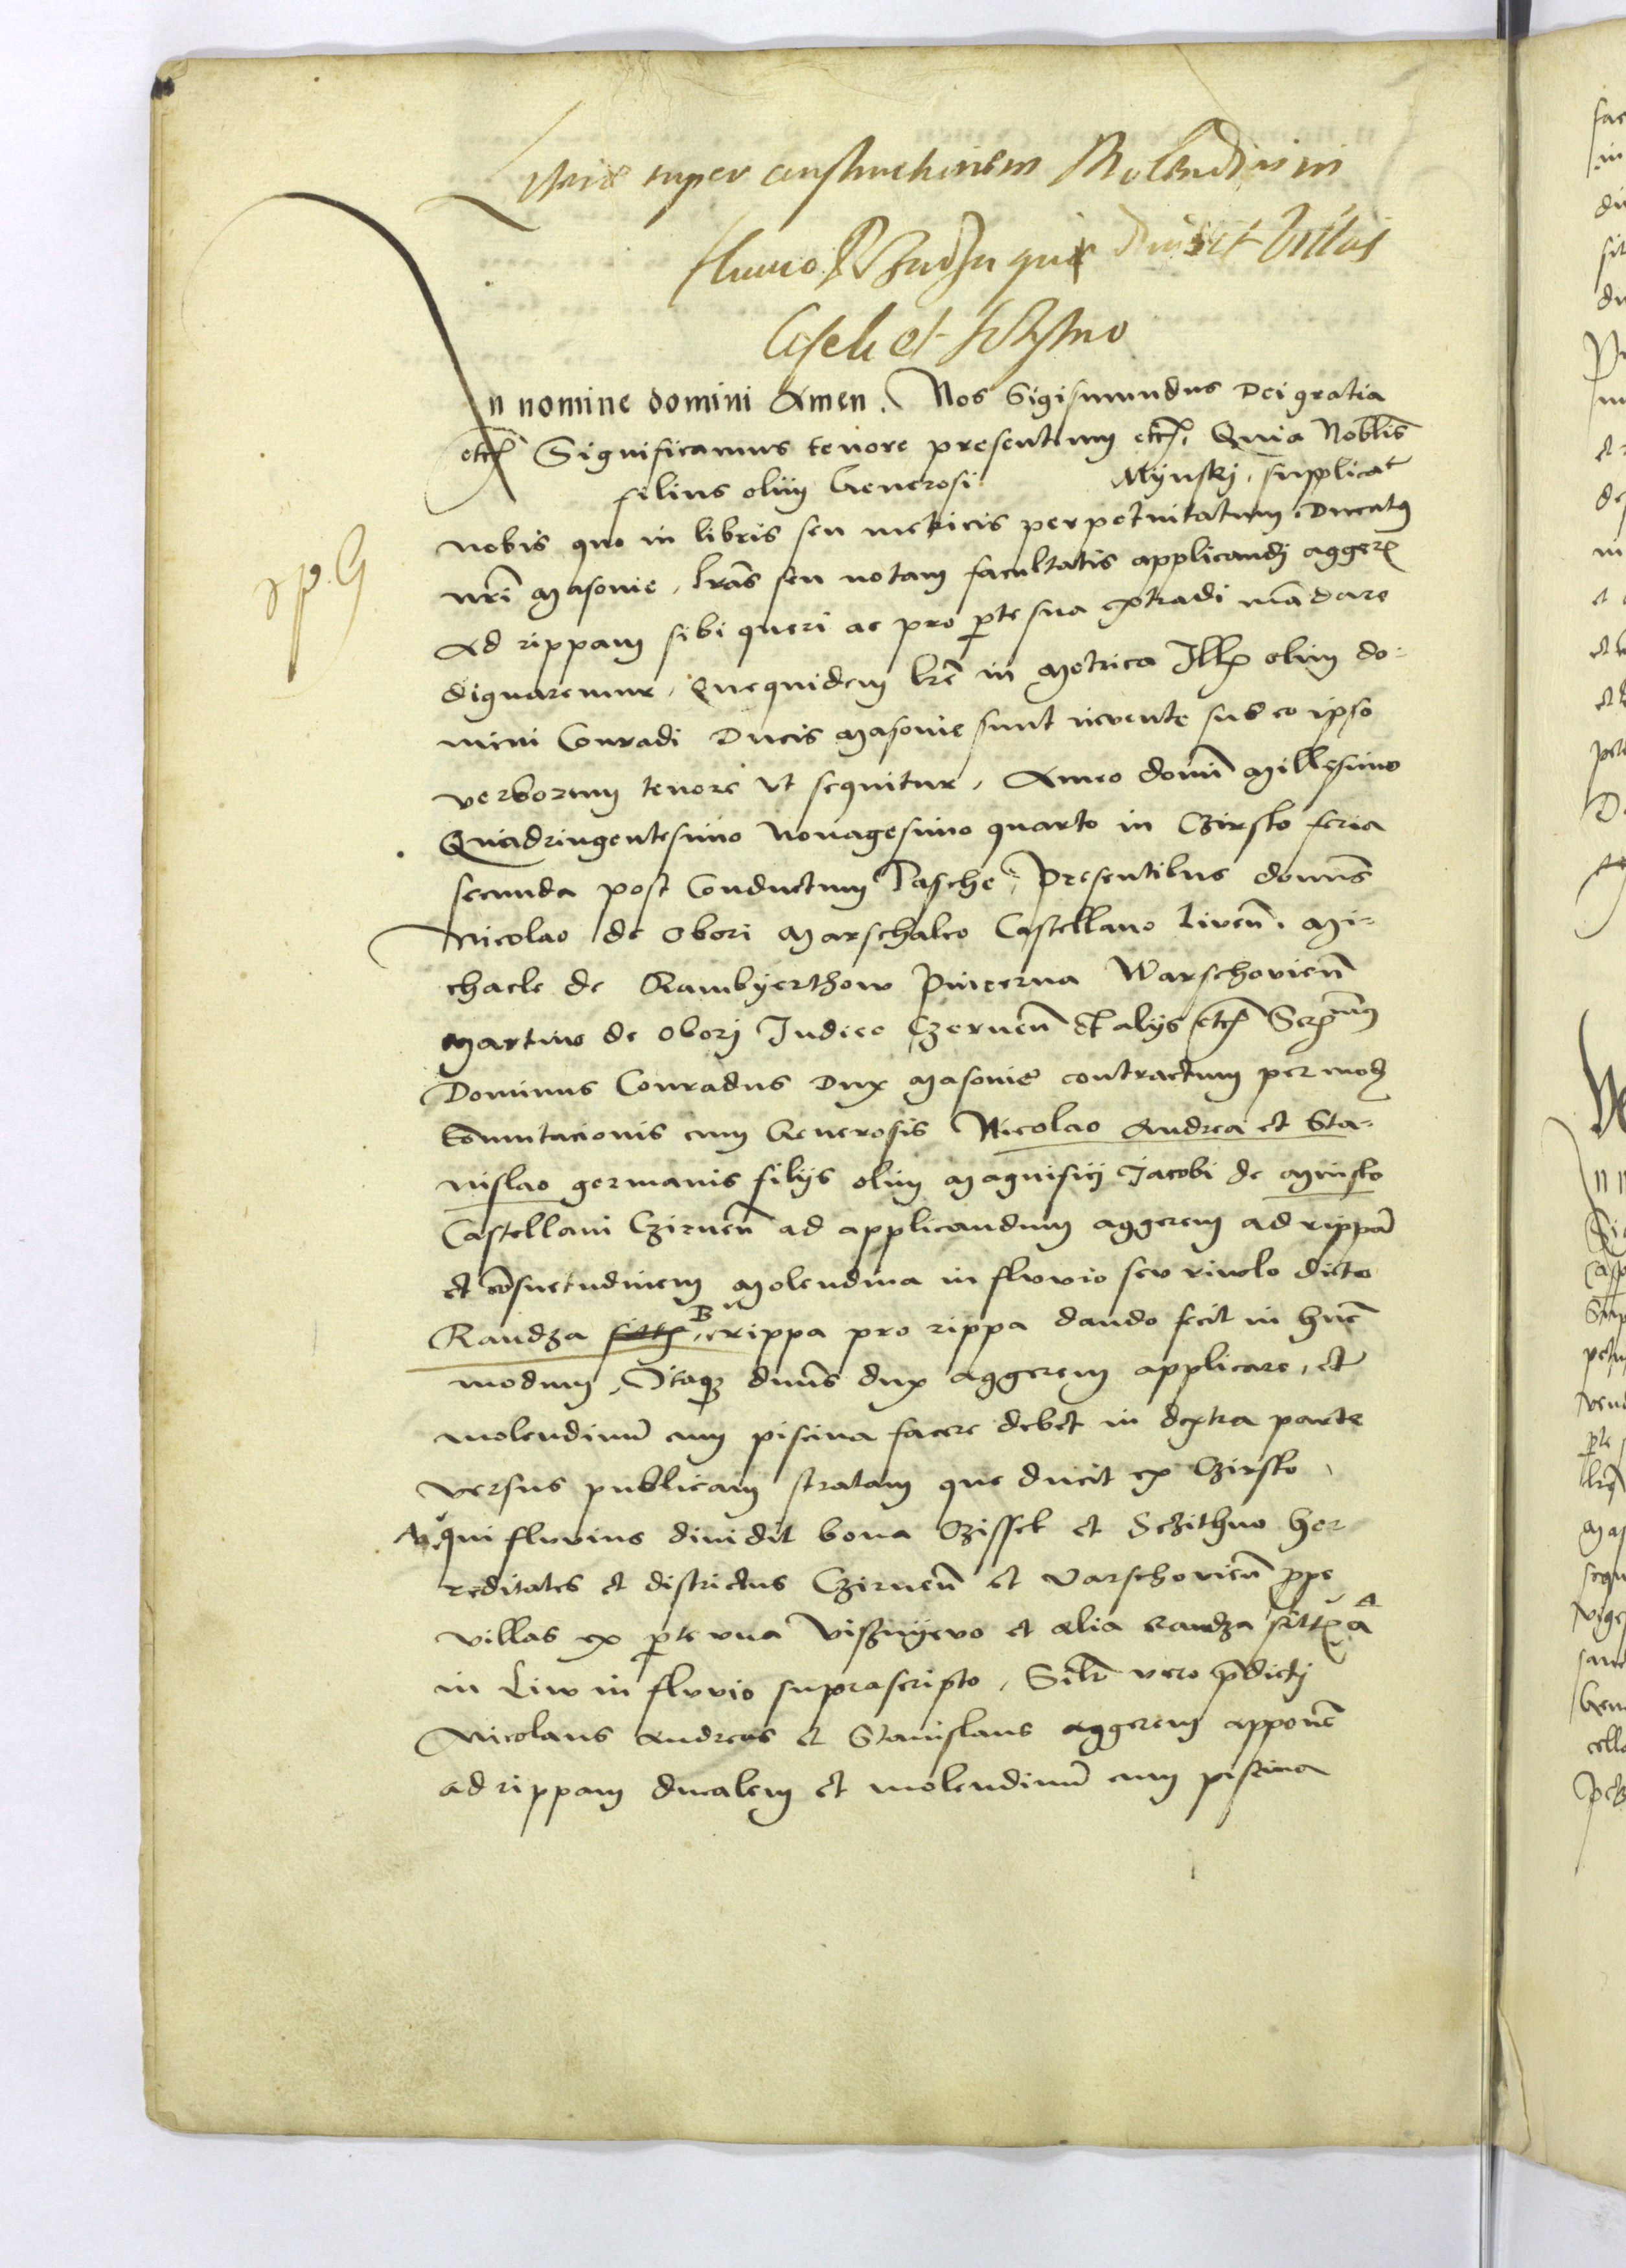 super constructionem Molendini in
fluvio Rzandza qui dividit Villas
et
In nomine domini Amen. Nos Sigismundus Dei gratia
etc Significamus tenore presentium etc. Quia Noblis
filius olim Generosi Mijnskj, supplicat
nobis quo in libris seu metricis perpetuitatum Ducatus
nri Masovie, lras seu notam facultatis applicandj aggere
Ad rippam sibi queri ac pro pte sua extradi madare
dignaremur, Quequidem lre in Metrica Illu olim do-
mini Conradi Ducis Masovie sunt invente sub eo ipso
verborum tenore ut sequitur, Anno domi Millesimo
Quadringentesimo Nonagesimo quarto in Czirsko feria
secunda post Conductum Pasche, Presentibus domis
Nicolao de Obori Marschalco Castellano Livens. Mi-
chaele de Rambyerthow Pincerna Warschovien
Martino de Oborj Judice Czernen et alijs etc Sermus
Dominus Conradus Dux Masovie contractum per mod
Comutacionis cum Generosis Nicolao Andrea et Sta-
nislao germanis filijs olim Magnificj Jacobi de Minsko
Castellani Czirnen ad applicandum aggerem ad rippa
et cosuetudinem Molendina in fluvio seu rivolo dicto
Randza B rippa pro rippa dando fecit in hunc
modum, Itaq dnus dux aggerem applicare, et
molendinu cum piscina facere debet in dextra parte
versus publicam stratam que ducit ex Czirsko,
A qui fluvius dividit bona Czissek et Sczithno her
reditates et districtus Czirnen et Varschovien ppe
villas ex pte una Viszniyevo et alia Randza
in Liw in fluvio suprascripto, Silr vero pdictj
Nicolaus Andreas et Stanislaus aggerem apponet
ad rippam ducalem et molendinu cum piscina